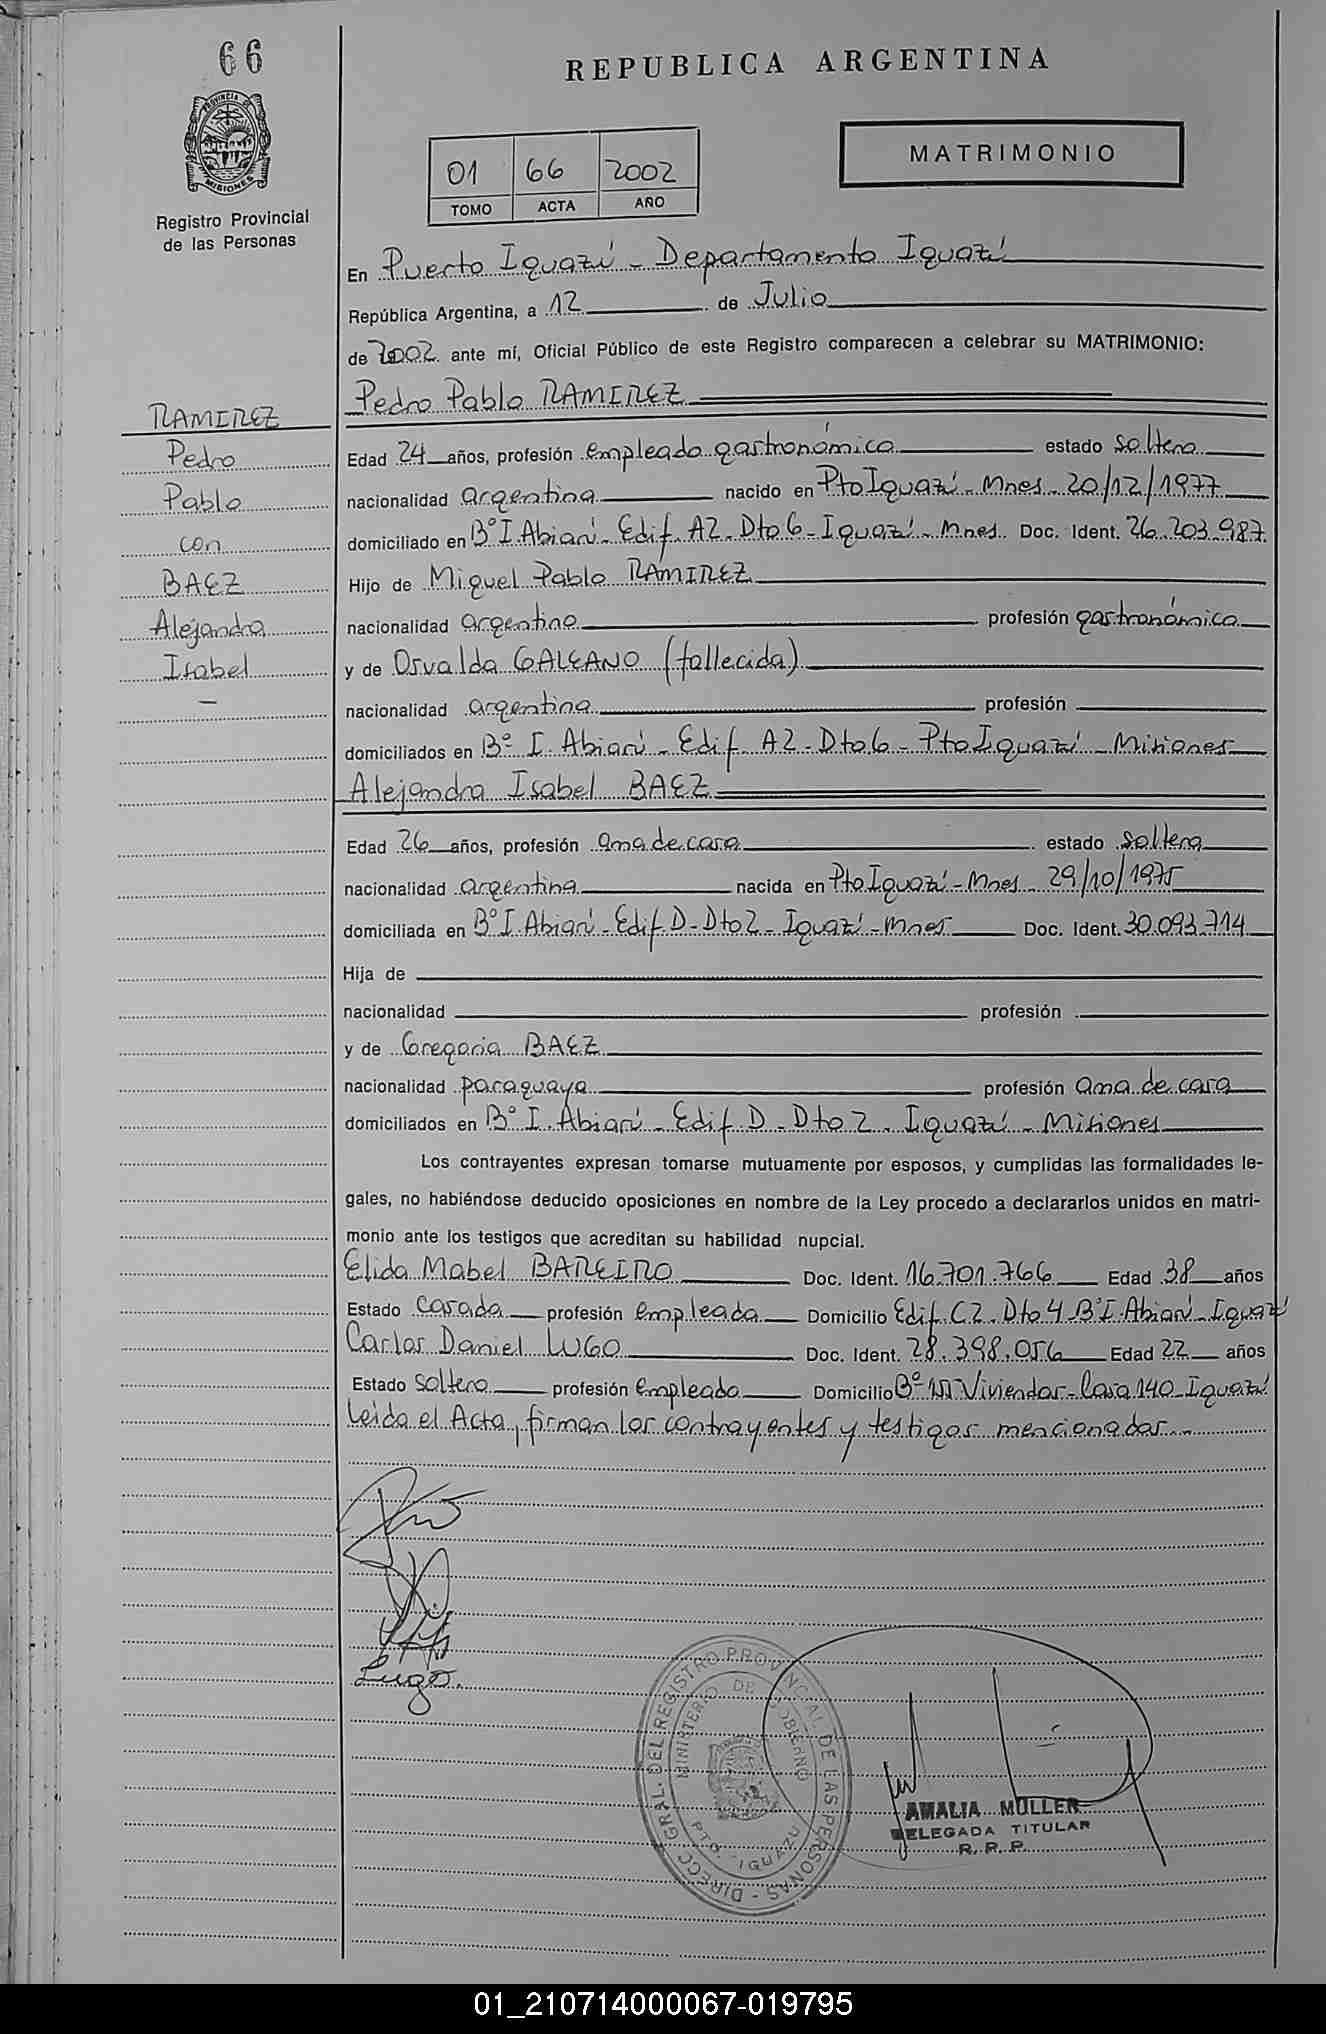 66
REPUBLICA ARGENTINA
PROVINCIA DE
MISIONES
Registro Provincial
de las Personas
01 66 2002
TOMO ACTA AÑO
MATRIMONIO
En Puerto Iguazú - Departamento Iguazú
República Argentina, a 12 de Julio
de 2002 ante mí, Oficial Público de este Registro comparecen a celebrar su MATRIMONIO:
RAMIREZ
Pedro
Pablo
con
BAEZ
Alejandra
Isabel
-
Pedro Pablo RAMIREZ
Edad 24 años, profesión empleado gastronómico estado soltero
nacionalidad argentina nacido en Pto Iguazú - Mnes - 20/12/1977
domiciliado en B° I. Abiarú - Edif. A2 - Dto 6 - Iguazú - Mnes. Doc. Ident. 26.203.987.
Hijo de Miguel Pablo RAMIREZ
nacionalidad argentino profesión gastronómico
y de Osvalda GALEANO (fallecida)
nacionalidad argentina profesión
domiciliados en B° I. Abiarú - Edif. A2 - Dto 6 - Pto Iguazú - Misiones
Alejandra Isabel BAEZ
Edad 26 años, profesión ama de casa estado soltera
nacionalidad argentina nacida en Pto Iguazú - Mnes - 29/10/1975
domiciliada en B° I. Abiarú - Edif D - Dto 2 - Iguazú - Mnes Doc. Ident. 30.093.714
Hija de
nacionalidad profesión
y de Gregoria BAEZ
nacionalidad paraguaya profesión ama de casa
domiciliados en B° I. Abiarú - Edif. D - Dto 2 - Iguazú - Misiones
Los contrayentes expresan tomarse mutuamente por esposos, y cumplidas las formalidades le-
gales, no habiéndose deducido oposiciones en nombre de la Ley procedo a declararlos unidos en matri-
monio ante los testigos que acreditan su habilidad nupcial.
Elida Mabel BAREIRO Doc. Ident. 16.701.766 Edad 38 años
Estado casada profesión empleada Domicilio Edif. C2 - Dto 4 - B° I. Abiarú - Iguazú
Carlos Daniel LUGO Doc. Ident. 28.398.056 Edad 22 años
Estado soltero profesión empleado Domicilio B° Viviendas - Casa 140 - Iguazú
Leida el Acta, firman los contrayentes y testigos mencionados...
Lugo.
DIRECC. GRAL. DEL REGISTRO PROVINCIAL DE LAS PERSONAS -
MINISTERIO DE GOBIERNO
PTO. IGUAZU
AMALIA MULLER
DELEGADA TITULAR
R. P. P.
01_210714000067-019795